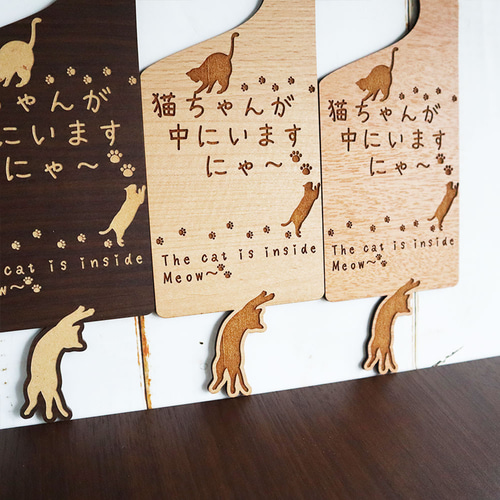 ちゃんが
にいます
にゃ～
e cat is inside
w～
猫ちゃんが
中にいます
にゃ～
The cat is inside
Meow～
猫ちゃんが
中にいます
にゃ～
The cat is inside
Meow～